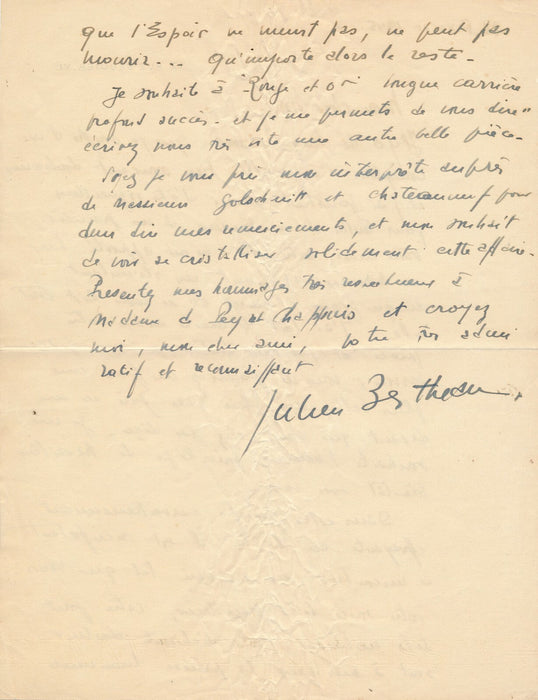 que l'Espoir ne meurt pas, ne peut pas
mourir... qu'importe alors le reste.
Je souhaite à "Rouge et or" longue carrière
profond succès. et je me permets de vous dire "
écrivez nous très vite une autre belle pièce.
Soyez je vous prie mon interprète auprès
de Messieurs Golschmitt et Chateauneuf pour
leur dire mes remerciements, et mon souhait
de voir se cristalliser solidement cette affaire.
Presentez mes hommages très respectueux à
Madame de Peyret Chappuis et croyez
moi, mon cher ami, votre très admi
ratif et reconnaissant
Julien Bertheau.